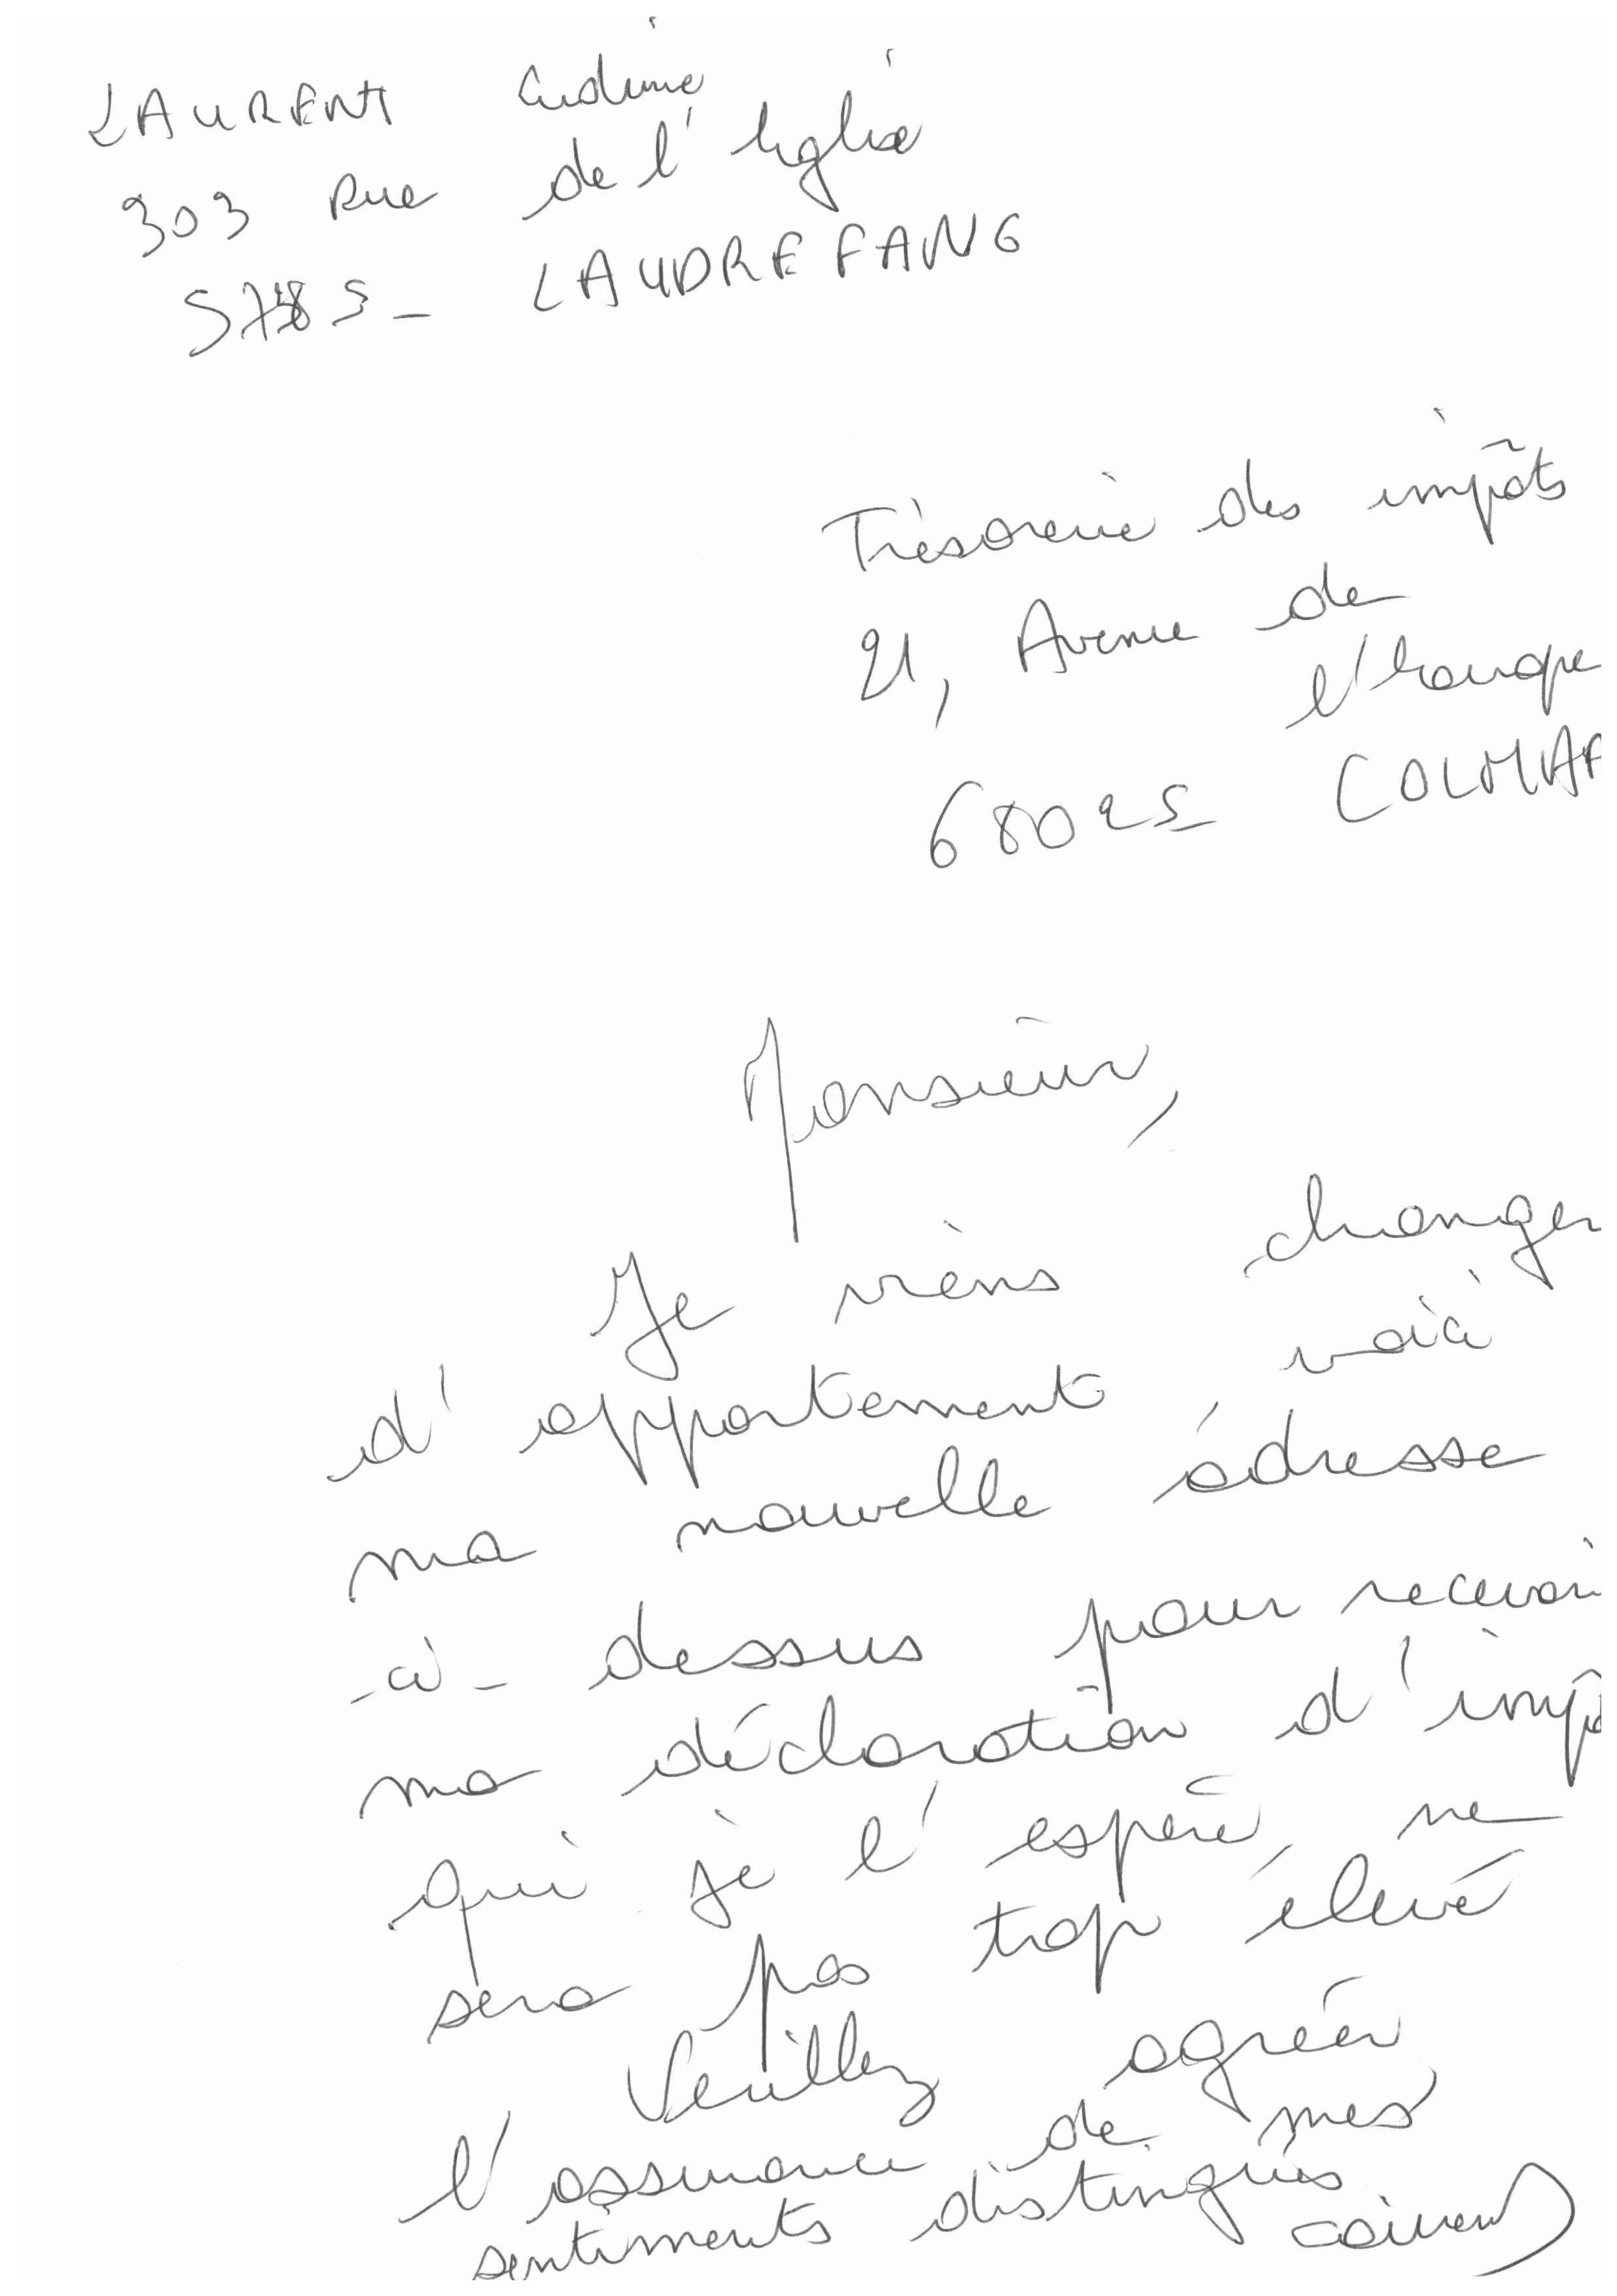 LAURENT Ludivine
303 Rue de l'église
57385 - LAUDREFANG
Trésorerie des impôts
21, Avenue de
l'europe
68025 COLMAR
Monsieur,
Je viens changer
d'appartement, voici
ma nouvelle adresse
ci-dessus pour recevoir
ma déclaration d'impô
qui je l'espère, ne
sera pas trop élevé
Veuillez agréer
l'assurance de mes
sentiments distingués